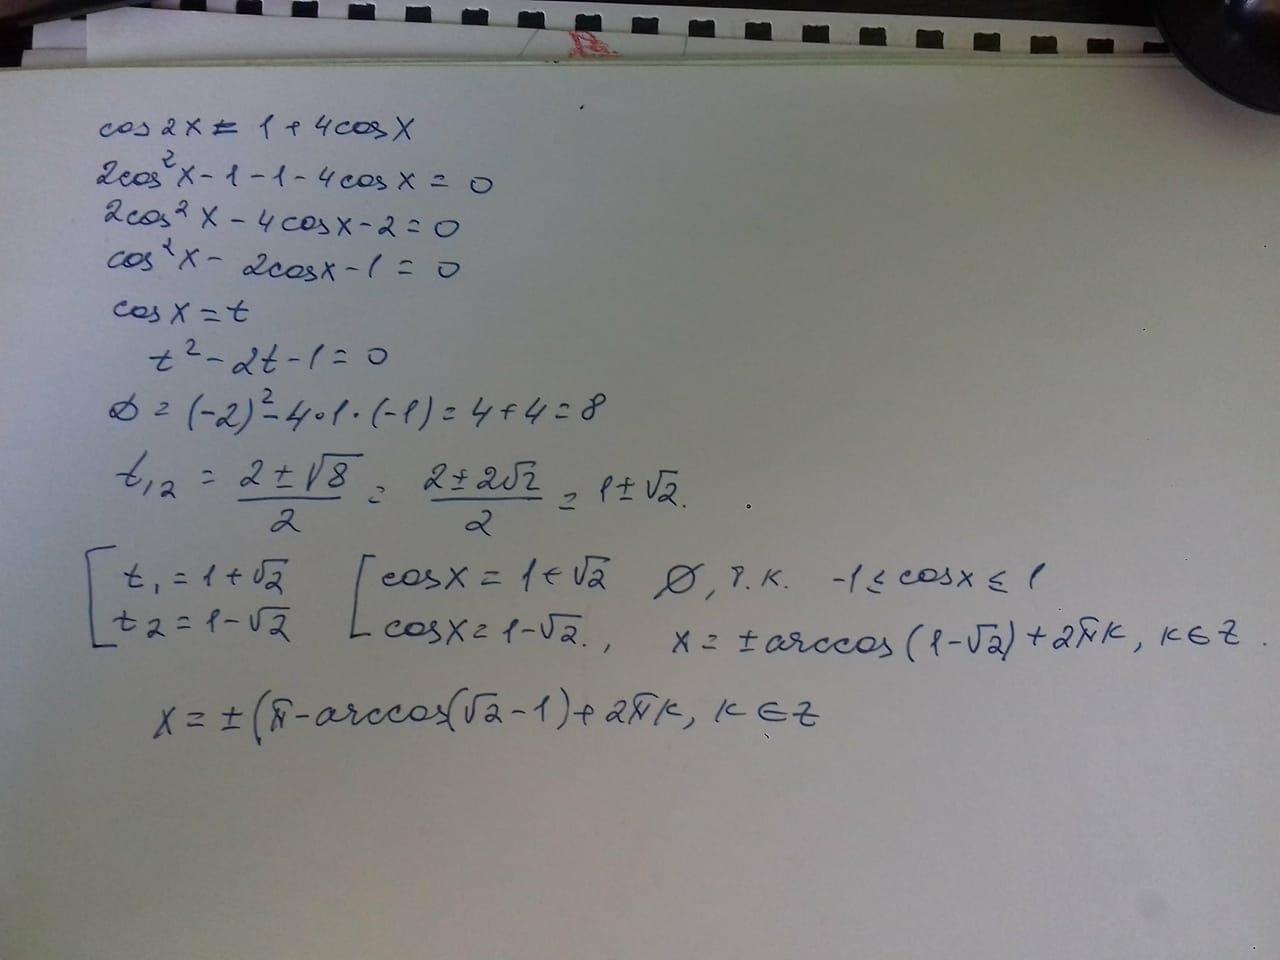 cos2x = 1 + 4cosx
2cos²x - 1 - 1 - 4cosx = 0
2cos²x - 4cosx - 2 = 0
cos²x - 2cosx - 1 = 0
cosx = t
t² - 2t - 1 = 0
D = (-2)² - 4·1·(-1) = 4 + 4 = 8
t₁,₂ = (2 ± √8)/2 = (2 ± 2√2)/2 = 1 ± √2.
[ t₁ = 1 + √2 [ cosx = 1 + √2 ∅, т.к. -1 ≤ cosx ≤ 1
t₂ = 1 - √2 cosx = 1 - √2., x = ± arccos(1 - √2) + 2πk, k ∈ Z.
x = ± (π - arccos(√2 - 1) + 2πk, k ∈ Z